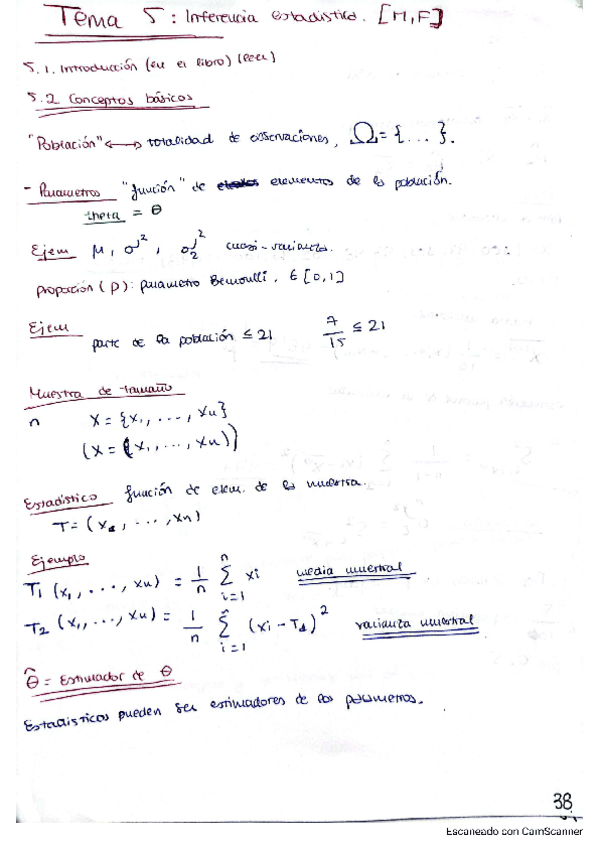 Tema 5: Inferencia estadística. [M,F]
5.1. Introducción (en el libro) (leer)
5.2 Conceptos básicos
"Población" ⟷ totalidad de observaciones, Ω = {...}.
- Parametros "función" de elementos de la población.
theta = θ
Ejem μ, σ², σ₂² cuasi-varianza.
Proporción (p): parametro Bernoulli, ∈ [0,1]
Ejem
parte de la población ≤ 21 7/15 ≤ 21
Muestra de tamaño
n X = {x₁, ..., xn}
(X = (x₁, ..., xn))
Estadístico función de elem. de la muestra.
T = (x₁, ..., xn)
Ejemplo
T₁ (x₁, ..., xn) = 1/n Σ i=1 n xi media muestral
T₂ (x₁, ..., xn) = 1/n Σ i=1 n (xi - T₁)² varianza muestral
θ̂ = Estimador de θ
Estadísticos pueden ser estimadores de los parámetros.
38
Escaneado con CamScanner